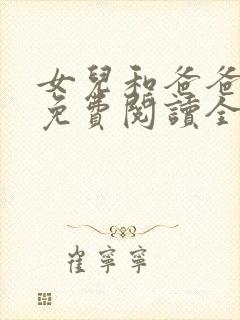 女兒和爸爸
免費閱讀全
崔寧寧